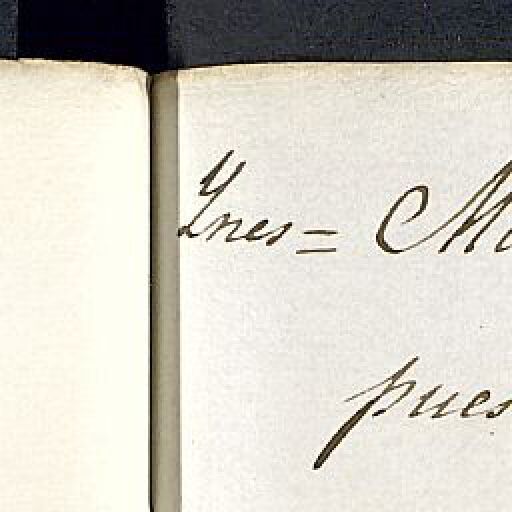 Ynes = M
pues